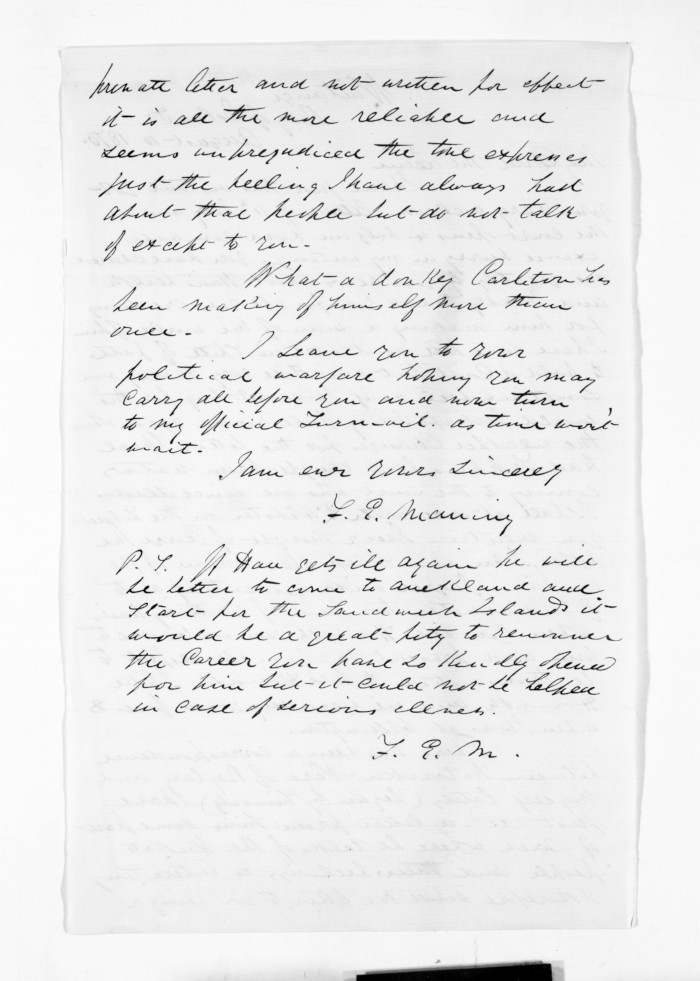 private letter and not written for effect
it is all the more reliable and
seems unprejudiced the tone expresses
just the feeling I have always had
about that people but do not talk
of except to you.
What a donkey Carleton has
been making of himself more than
once.
I leave you to your
political warfare hoping you may
carry all before you and now turn
to my official Turmoil. as time won't
wait.
I am ever yours sincerely
F. E. Maning
P. S. If Hau gets ill again he will
be better to come to Auckland and
start for the Sandwich Islands it
would be a great pity to renounce
the Career you have so kindly opened
for him but it could not be helped
in case of serious illness.
F. E. M.